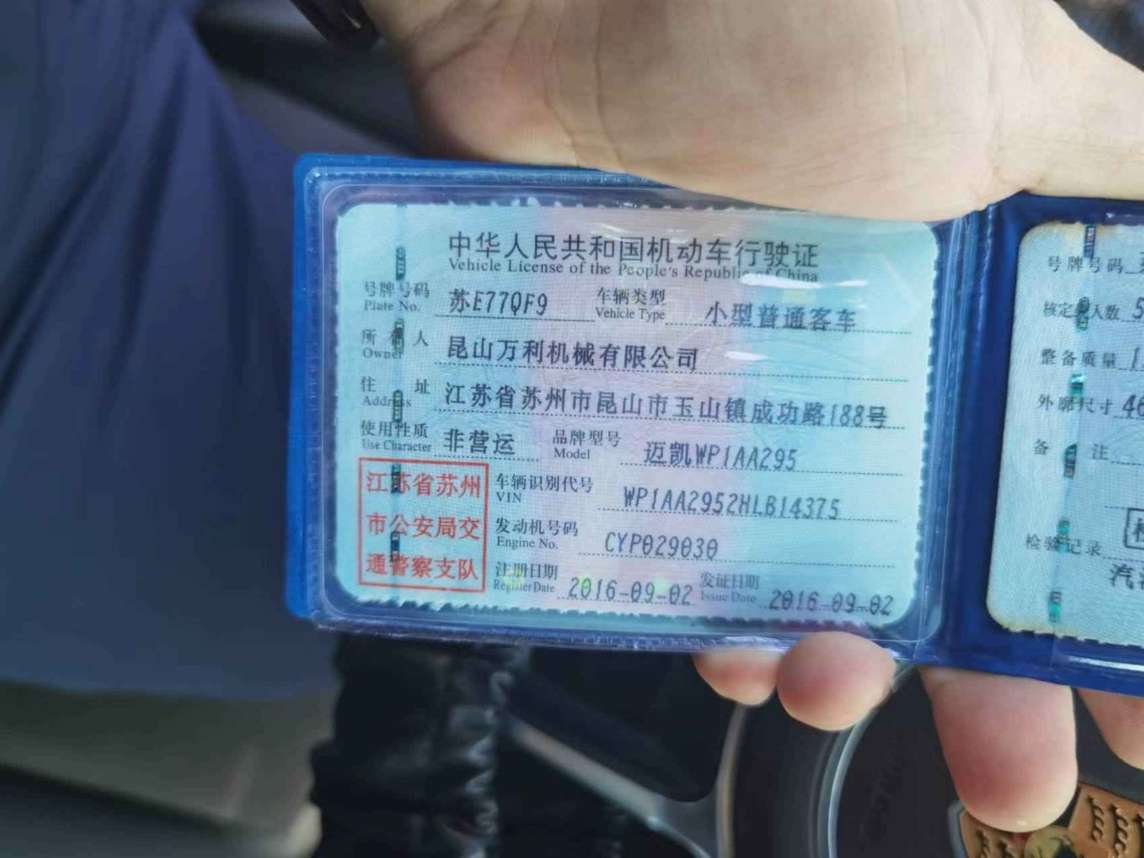 中华人民共和国机动车行驶证
Vehicle License of the People's Republic of China
号牌号码 苏E77QF9 车辆类型 小型普通客车
Plate No. Vehicle Type
所有人 昆山万利机械有限公司
Owner
住址 江苏省苏州市昆山市玉山镇成功路188号
Address
使用性质 非营运 品牌型号 迈凯WP1AA295
Use Character Model
江苏省苏州
市公安局交
通警察支队
车辆识别代号 WP1AA2952HLB14375
VIN
发动机号码 CYP029030
Engine No.
注册日期 2016-09-02 发证日期 2016-09-02
Register Date Issue Date
号牌号码
核定载人数 5
整备质量 1
外廓尺寸 4
备注
检验记录
汽